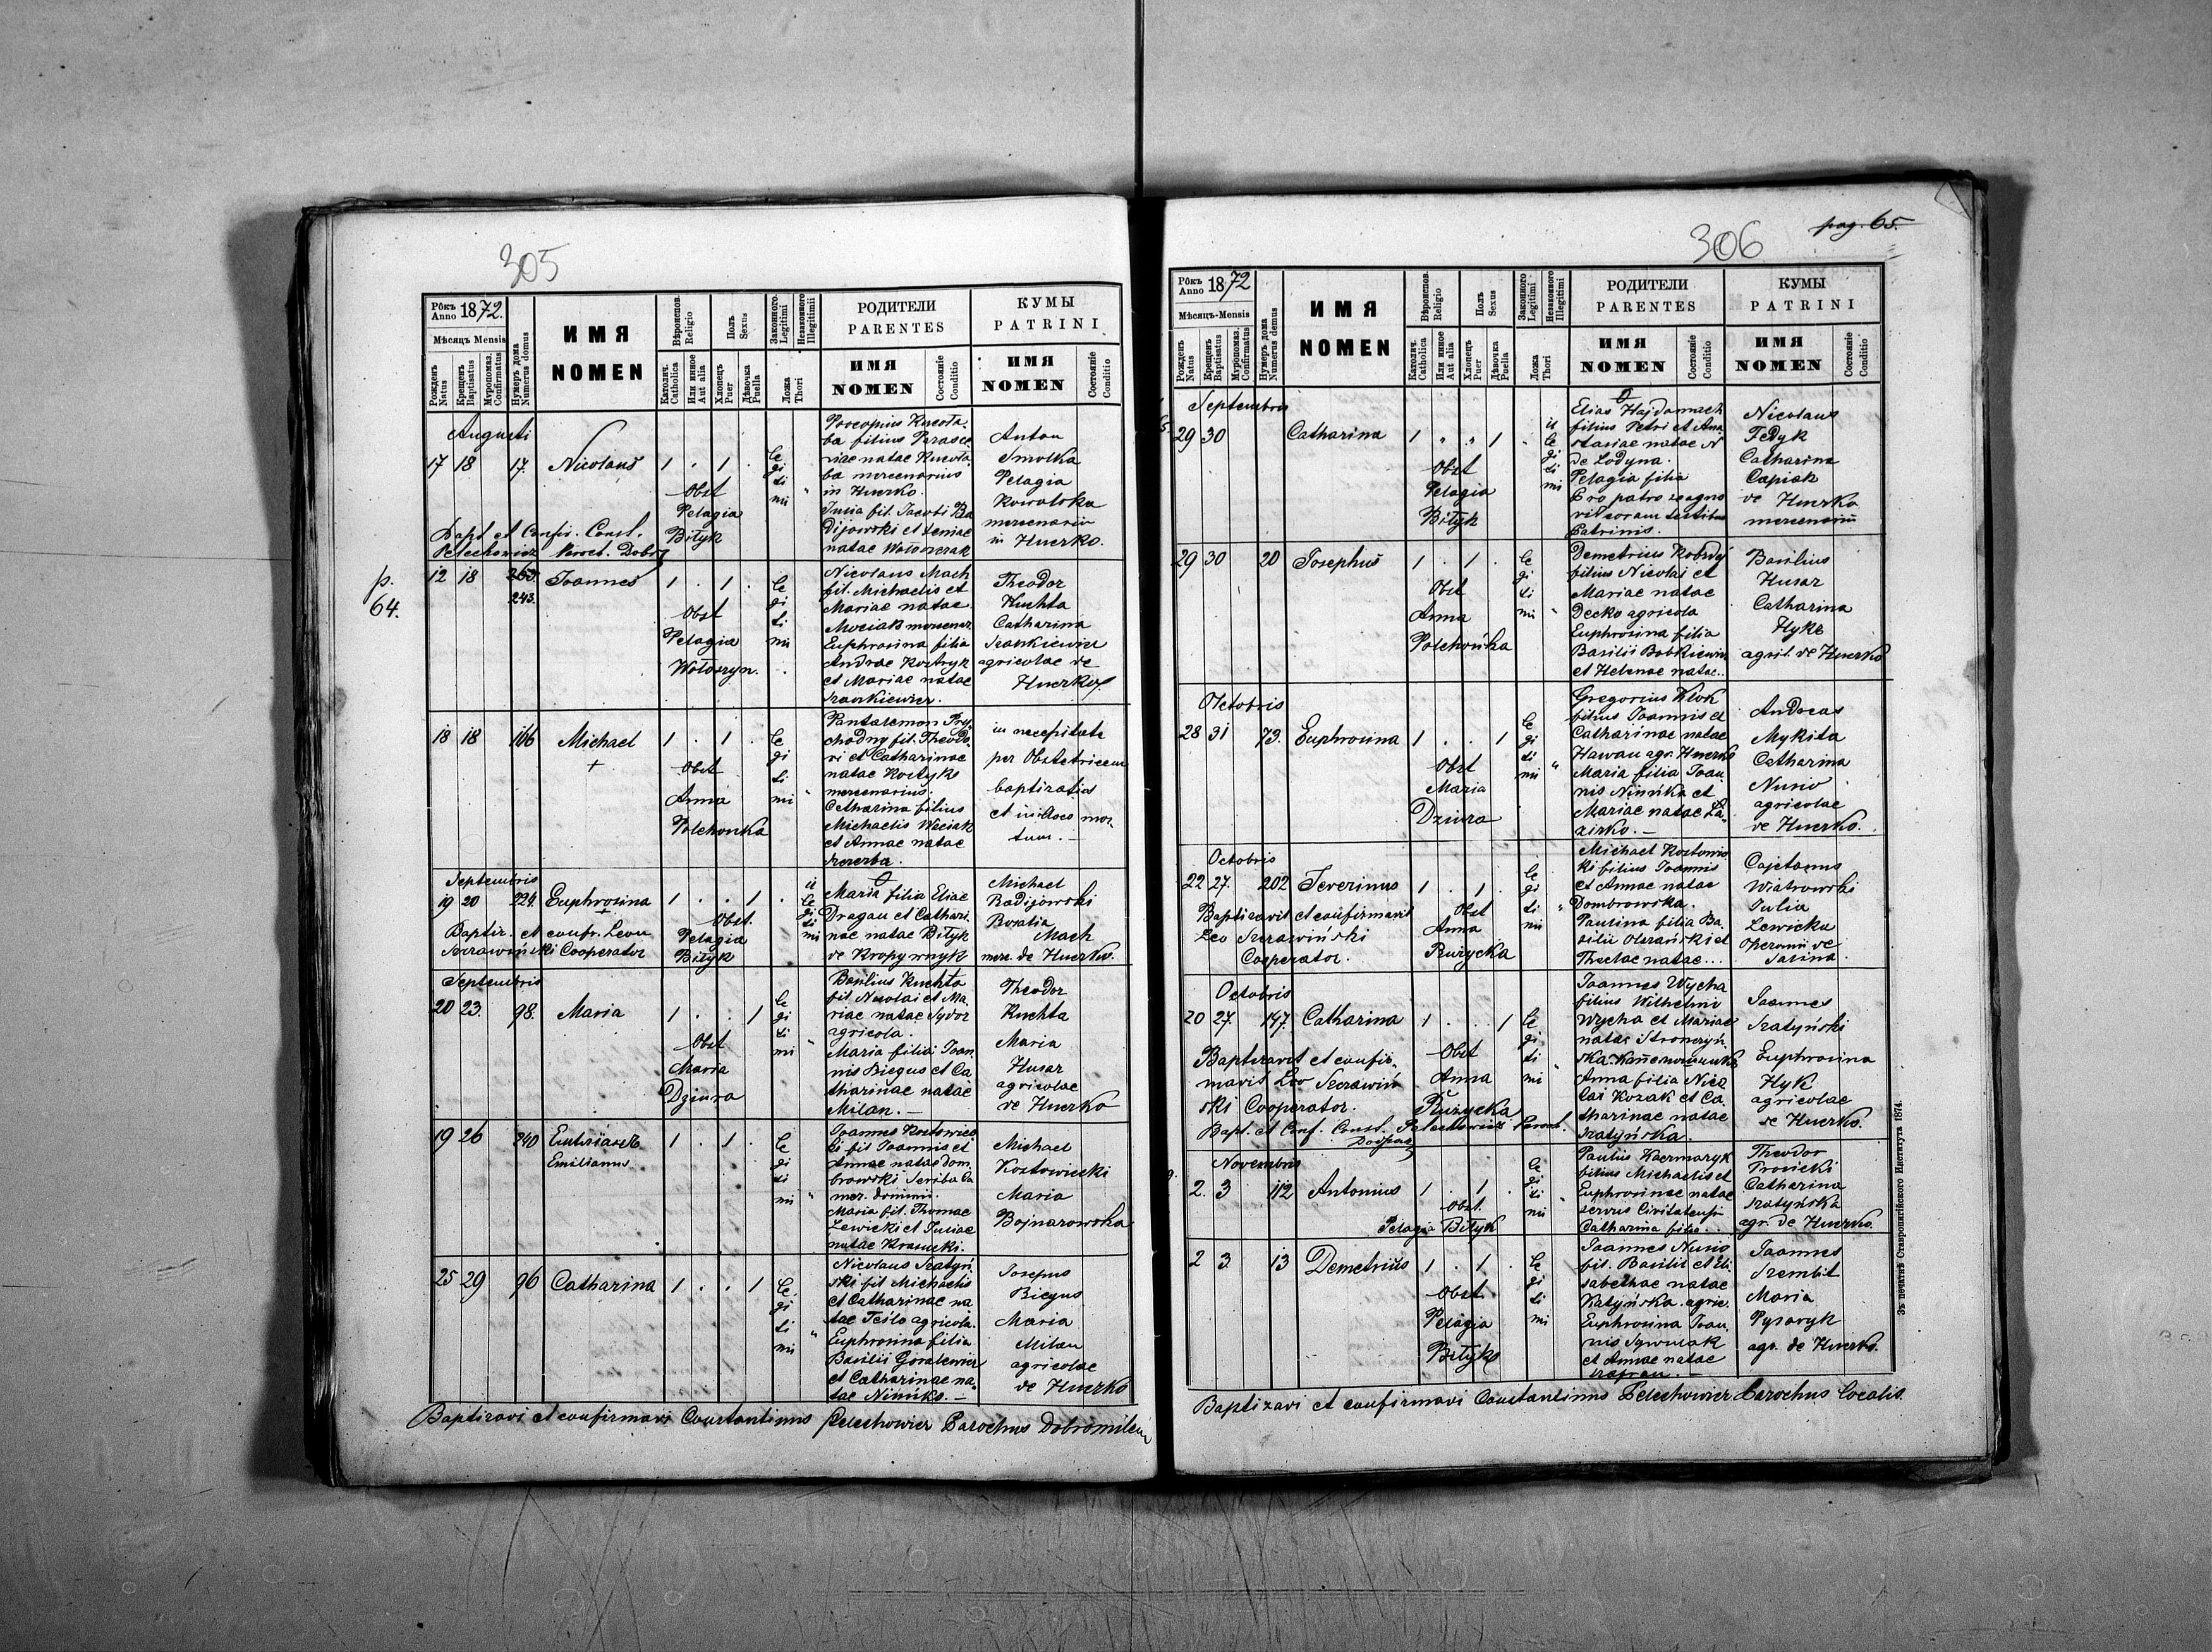 305
Рôкъ
Anno 1872.
Мѣсяцъ Mensis
Рожденъ Natus
Крещенъ Baptisatus
Муропомаз. Confirmatus
Нумеръ дома Numerus domus
ИМЯ
NOMEN
Вѣроиспов. Religio
Католич. Catholica
Или иное Aut alia
Полъ Sexus
Хлопецъ Puer
Дѣвочка Puella
Законного Legitimi
Незаконного Illegitimii
Ложа Thori
РОДИТЕЛИ
PARENTES
ИМЯ
NOMEN
Состояніе Conditio
КУМЫ
PATRINI
ИМЯ
NOMEN
Состояніе Conditio
Augusti
17 18 17. Nicolaus 1 . 1 .
Obst
Pelagia
Biłyk
le
gi
ti
mi
Procopius
ba filius Parasce
viae natae
ba mercenarius
in Hucrko.
Julia fil. Jacobi Ba
dijowski et Xeniae
natae Wołoszczak
Anton
Smolka
Pelagia
Kowalska
mercenarii
in Hucrko.
Bapt et Confir. Const.
Pelechowicz Paroch. Dobr.
p.
64.
12 18 263.
243.
Joannes 1 . 1 .
Obst
Pelagia
Wołoszyn.
le
gi
ti
mi
Nicolaus Mach
fil. Michaelis et
Mariae natae
Mociak mercenar
Euphrosina filia
Andrae Kostryk
et Mariae natae
Stankiewicz.
Theodor
Kuchta
Catharina
Stankiewicz
agricolae de
Hucrko.
18 18 166 Michael 1 . 1 .
+
Obst
Anna
Polchonka
le
gi
ti
mi
Pantalemon Pry
chodny fil. Theodo
ri et Catharinae
natae Kostyk
mercenarius.
Catharina filius
Michaelis Waciak
et Annae natae
Szczerba.
in necepitate
per Obstetricem
baptisatus
et in loco mor
tuus. —
Septembris
19 20 224. Euphrosina 1 . . 1 .
+
Obst.
Pelagia
Biłyk
il
le
gi
ti
mi
Maria filia Eliae
Dragan et Cathari.
nae natae Biłyk
de Kropywnyk
Michael
Badijowski
Rosalia
Mach
merc. de Hucrko.
Baptiz. et confr. Leon
Szrawiński Cooperator
Septembris
20 23. 98. Maria 1 . . 1
Obst
Maria
Dziura
le
gi
ti
mi
Basilius Kuchta
fil. Nicolai et Ma.
riae natae Sydor
agricola.
Maria filia Joan
nis Biegus et Ca
tharinae natae
Milan. —
Theodor
Kuchta
Maria
Husar
agricolae
de Hucrko
19 26 240
Emilianus
1 . 1 .
le
gi
ti
mi
Joannes Kozłowiec
ki fil Joannis et
Annae natae Dom
browski Scriba Ca
mer. dominii.
Maria fil. Thomae
Lewicki et Juliae
natae Krasucki.
Michael
Kozłowiecki
Maria
Bojnarowska
25 29 96 Catharina 1 . . 1
le.
gi
ti
mi
Nicolaus Szatyń
ski fil Michaelis
et Catharinae na
tae Teślo agricola.
Euphrosina filia
Basilii Goralewicz
et Catharinae na
tae Nińko. —
Josepus
Biegus
Maria
Milan
agricolae
de Hucrko
Baptizavi et confirmavi Constantinus Pelechowicz Parochus Dobromilen
306
pag. 65.
Рôкъ
Anno 1872
Мѣсяцъ-Mensis
Рожденъ Natus
Крещенъ Baptisatus
Муропомаз. Confirmatus
Нумеръ дома Numerus domus
ИМЯ
NOMEN
Вѣроиспов. Religio
Католич. Catholica
Или иное Aut alia
Полъ Sexus
Хлопецъ Puer
Дѣвочка Puella
Законного Legitimi
Незаконного Illegitimi
Ложа Thori
РОДИТЕЛИ
PARENTES
ИМЯ
NOMEN
Состояніе Conditio
КУМЫ
PATRINI
ИМЯ
NOMEN
Состояніе Conditio
Septembris
29 30 Catharina 1 " " 1
Obst
Pelagia
Biłyk
il
le
gi
ti
mi
Elias Hajdamach
filius Petri et Ana
stasiae natae N
de Lodyna.
Pelagia filia
Pro patre reagno
vit coram testibus
Patrinis.
Nicolaus
Fedyk
Catharina
Capiak
de Hucrko
mercenarii
29 30 20 Josephus 1 . 1 .
Obst
Anna
Polchońka
le
gi
ti
mi
Demetrius Kobrdy
filius Nicolai et
Mariae natae
Decko agricola
Euphrosina filia
Basilii Bobkiewicz
et Helenae natae..
Basilius
Husar
Catharina
Hyk
agril. de Hucrko
Octobris
28 31 73. Euphrosina 1 . . 1
Obst
Maria
Dziura
le
gi
ti
mi
Gregorius Kłok
filius Joannis et
Catharinae natae
Hawan agr. Hucrko
Maria filia Joan
nis Nińka et
Mariae natae Ła
zirko. —
Andreas
Mykita
Catharina
Nusio
agricolae
de Hucrko.
Octobris
22 27. 202 Severinus 1 . 1 .
Obst
Anna
Ružycka
le
gi
ti
mi
Michael Kozłowis
ki filius Joannis
et Annae natae
Dombrowska.
Paulina filia Ba
silii Olszański et
Theclae natae...
Cajetanus
Wiatrowski
Julia
Lewicka
Operarii de
Salina.
Baptizavit et confirmavit
Leo Szrawiński
Cooperator.
Octobris
20 27. 147. Catharina 1 . . 1
Obst
Anna
Ružycka
le
gi
ti
mi
Joannes Wycha
filius Wilhelmi
Wycha et Mariae
natae Stronczyń
ska
Anna filia Nico
lai Kozak et Ca.
tharinae natae
Szatyńska.
Joannes
Szatyński
Euphrosina
Hyk
agricolae
de Hucrko.
Baptizavit et confir.
mavit Leo Szrawiń
ski Cooperator.
Bapt. et Conf. Const. Pelechowicz Paroch.
Novembris
2. 3 112 Antonius 1 . 1 .
Obst.
Pelagia Biłyk
le
gi
ti
mi
Paulus Kaczmaryk
filius Michaelis et
Euphrosinae natae
servus Civitatensis
Catharina filia...
Theodor
Prosicki
Catharina
Szatyńska
agr. de Hucrko.
2 3. 13 Demetrius 1 . 1 .
Obst.
Pelagia
Biłyk
le
gi
ti
mi
Joannes Nusio
fil. Basilii et Eli
sabethae natae
Katyńska. agric.
Euphrosina Joan.
nis
et Annae natae
Joannes
Szembit
Maria
Pysaryk
agr. de Hucrko.
Baptizavi et confirmavi Constantinus Pelechowicz Parochus Localis.
Зъ печатнѣ Ставропигійского Института 1874.